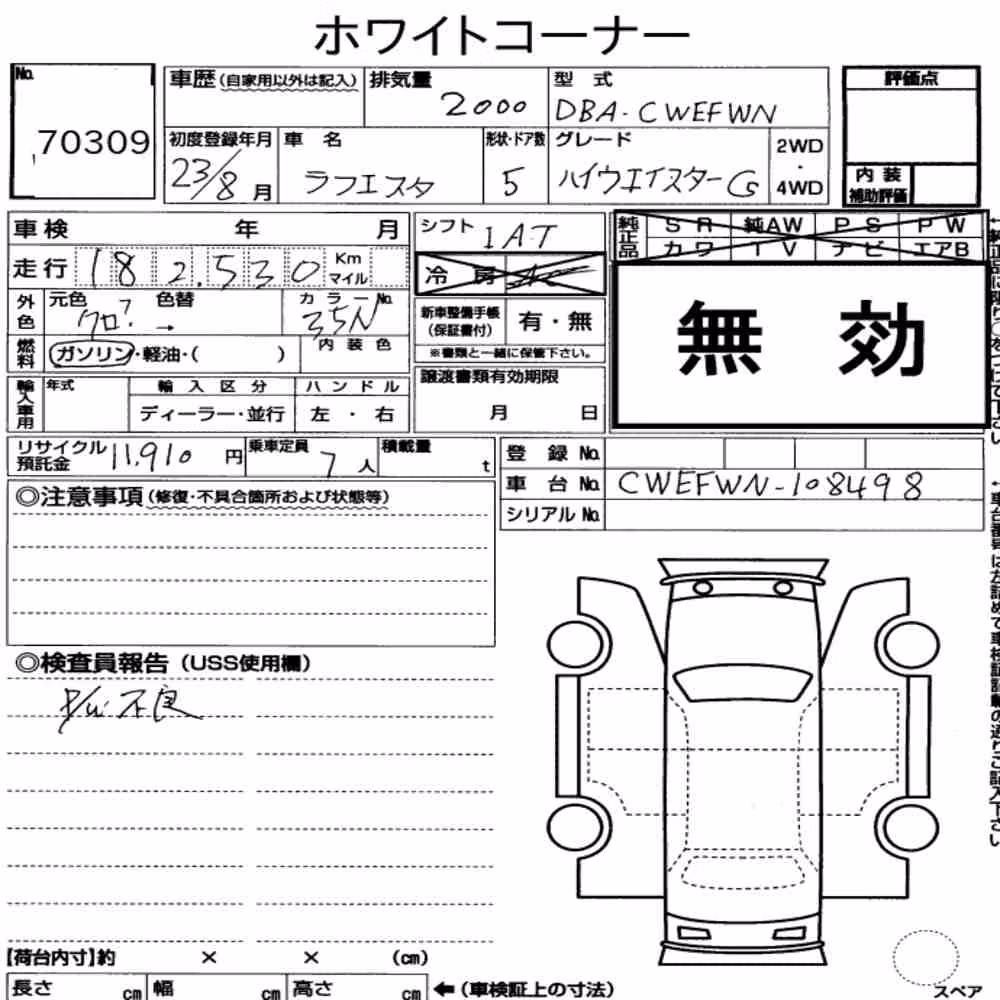 ホワイトコーナー
No. 70309
車歴(自家用以外は記入)
排気量 2000
型式 DBA-CWEFWN
評価点
初度登録年月 23/8月
車名 ラフェスタ
形状・ドア数 5
グレード ハイウエイスター
2WD・4WD
内装補助評価
車検 年 月
シフト 1AT
純正品 SR 純AW PS PW
カワ TV ナビ エアB
走行 182,530 Km マイル
冷房
無効
外色 元色 クロ? 色替 →
カラーNo. 35N
新車整備手帳(保証書付) 有・無
※書類と一緒に保管下さい。
燃料 ガソリン・軽油・( )
内装色
譲渡書類有効期限
月 日
輸入車用 年式 輸入区分 ハンドル
ディーラー・並行 左・右
リサイクル預託金 11,910円
乗車定員 7人
積載量 t
登録No.
車台No. CWEFWN-108498
シリアルNo.
◎注意事項(修復・不具合箇所および状態等)
◎検査員報告(USS使用欄)
不良
【荷台内寸】約 × × (cm)
長さ cm 幅 cm 高さ cm ←(車検証上の寸法)
スペア